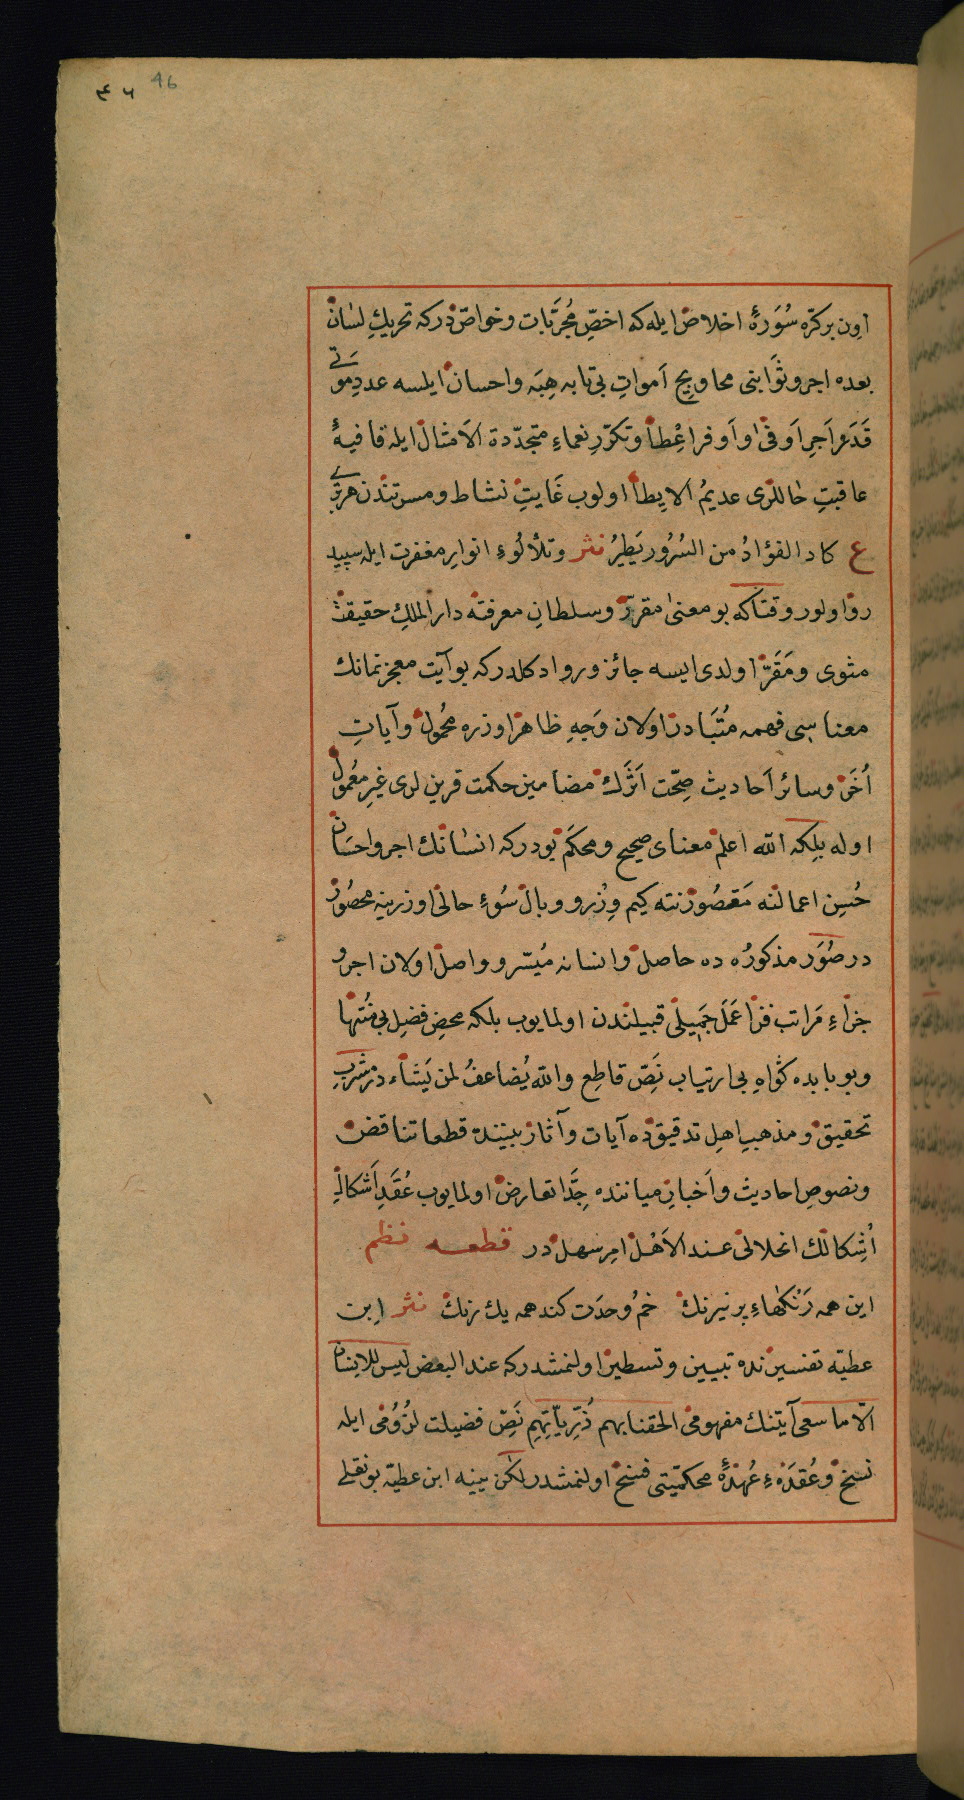 ٤٦ 46
اون بركرّه سُوَرهٔ اخلاص ايله كه اخصِّ مُجرَّبات وخواصّ دركه تحريكِ لسان
بعده اجر وثوَابنى محاويجِ اَمواتِ بى تابه هِبَه واحسان ايلسه عددِ موتى
قَدَر اَجرِ اَوفى واَوفر اعْطا وتكرّرِ نعماءِ متجدّدة الاَمثال ايله قافيهٔ
عاقبتِ حاللرى عديمُ الابِطا اولوب غَايتِ نشاط ومسرتندن هربرى
ع كاد الفؤادُ من السُرُور يَطِيرُ نثر وتلألُوءِ انوارِ مغفرت ايله سپيد
رو اولور وقتاكه بو معنىٰ مقرّر وسلطانِ معرفته دار الملكِ حقيقت
مثوى ومَقَرّ اولدى ايسه جائز وروا دكلدركه بو آيت معجز نمانك
معناسى فهمه مُتَبَادر اولان وَجهِ ظاهر اوزره محُمول وآياتِ
اُخَر وسائر اَحاديث صِحّت اَثَرك مضامين حكمت قرين لرى غيرِ مَعْمول
اوله بلكه الله اعلم معناى صحيح ومحكَم بودركه انسانك اجر واحسَان
حُسنِ اعمالنه مَقصُور نته كيم وِزر ووبال سُوءِ حالى اوزرينه محصُور
در صُوَر مذكورُه ده حاصل وانسانه مُيسّر وواصل اولان اجر و
جزاءِ مَراتب فزا عَمَل جَميلى قبيلندن اولمايوب بلكه محضِ فضلِ بى مُنتها
وبو بابده كُواهِ بى ارتياب نَصِّ قاطع والله يُضاعفُ لمن يَشاء در مشربِ
تحقيق ومذهبِ اهلِ تدقيقده آيات وآثار بيننده قطعا تناقض
ونصوصِ احاديث واَخبار مياننده جِدًّا تعارض اولمايوب عُقَدِ اَشكالِ
اُشِكالك انحلالى عند الاَهْل امرِ سهل در قطعه نظم
اين همه رَنكهاءِ پر نيرنك خمُ وحدَت كند همه يك رنك نثر اِبن
عطيّه تفسيرنده تبيين وتسطير اولنمشدركه عند البعض ليس للانسان
الّا ما سعى آيتنك مفهومى الحقنا بهم ذُرّيّاتِهِم نَصِّ فضيلت لزُومى ايله
نسخ وعُقدَهءِ عُهدهٔ محكميّتى فسخ اولنمشدر لٰكن ينه ابن عطيّه بو نقلى